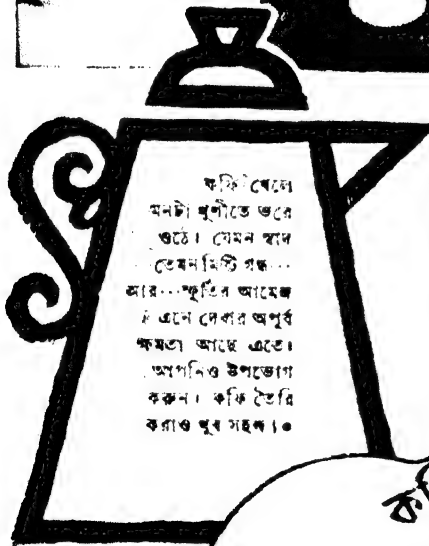 কফি খেলে
মনটা খুশীতে ভরে
ওঠে। যেমন স্বাদ
তেমন মিষ্টি গন্ধ···
আর···স্ফূর্তির আমেজ
এনে দেবার অপূর্ব
ক্ষমতা আছে এতে।
আপনিও উপভোগ
করুন। কফি তৈরি
করাও খুব সহজ।